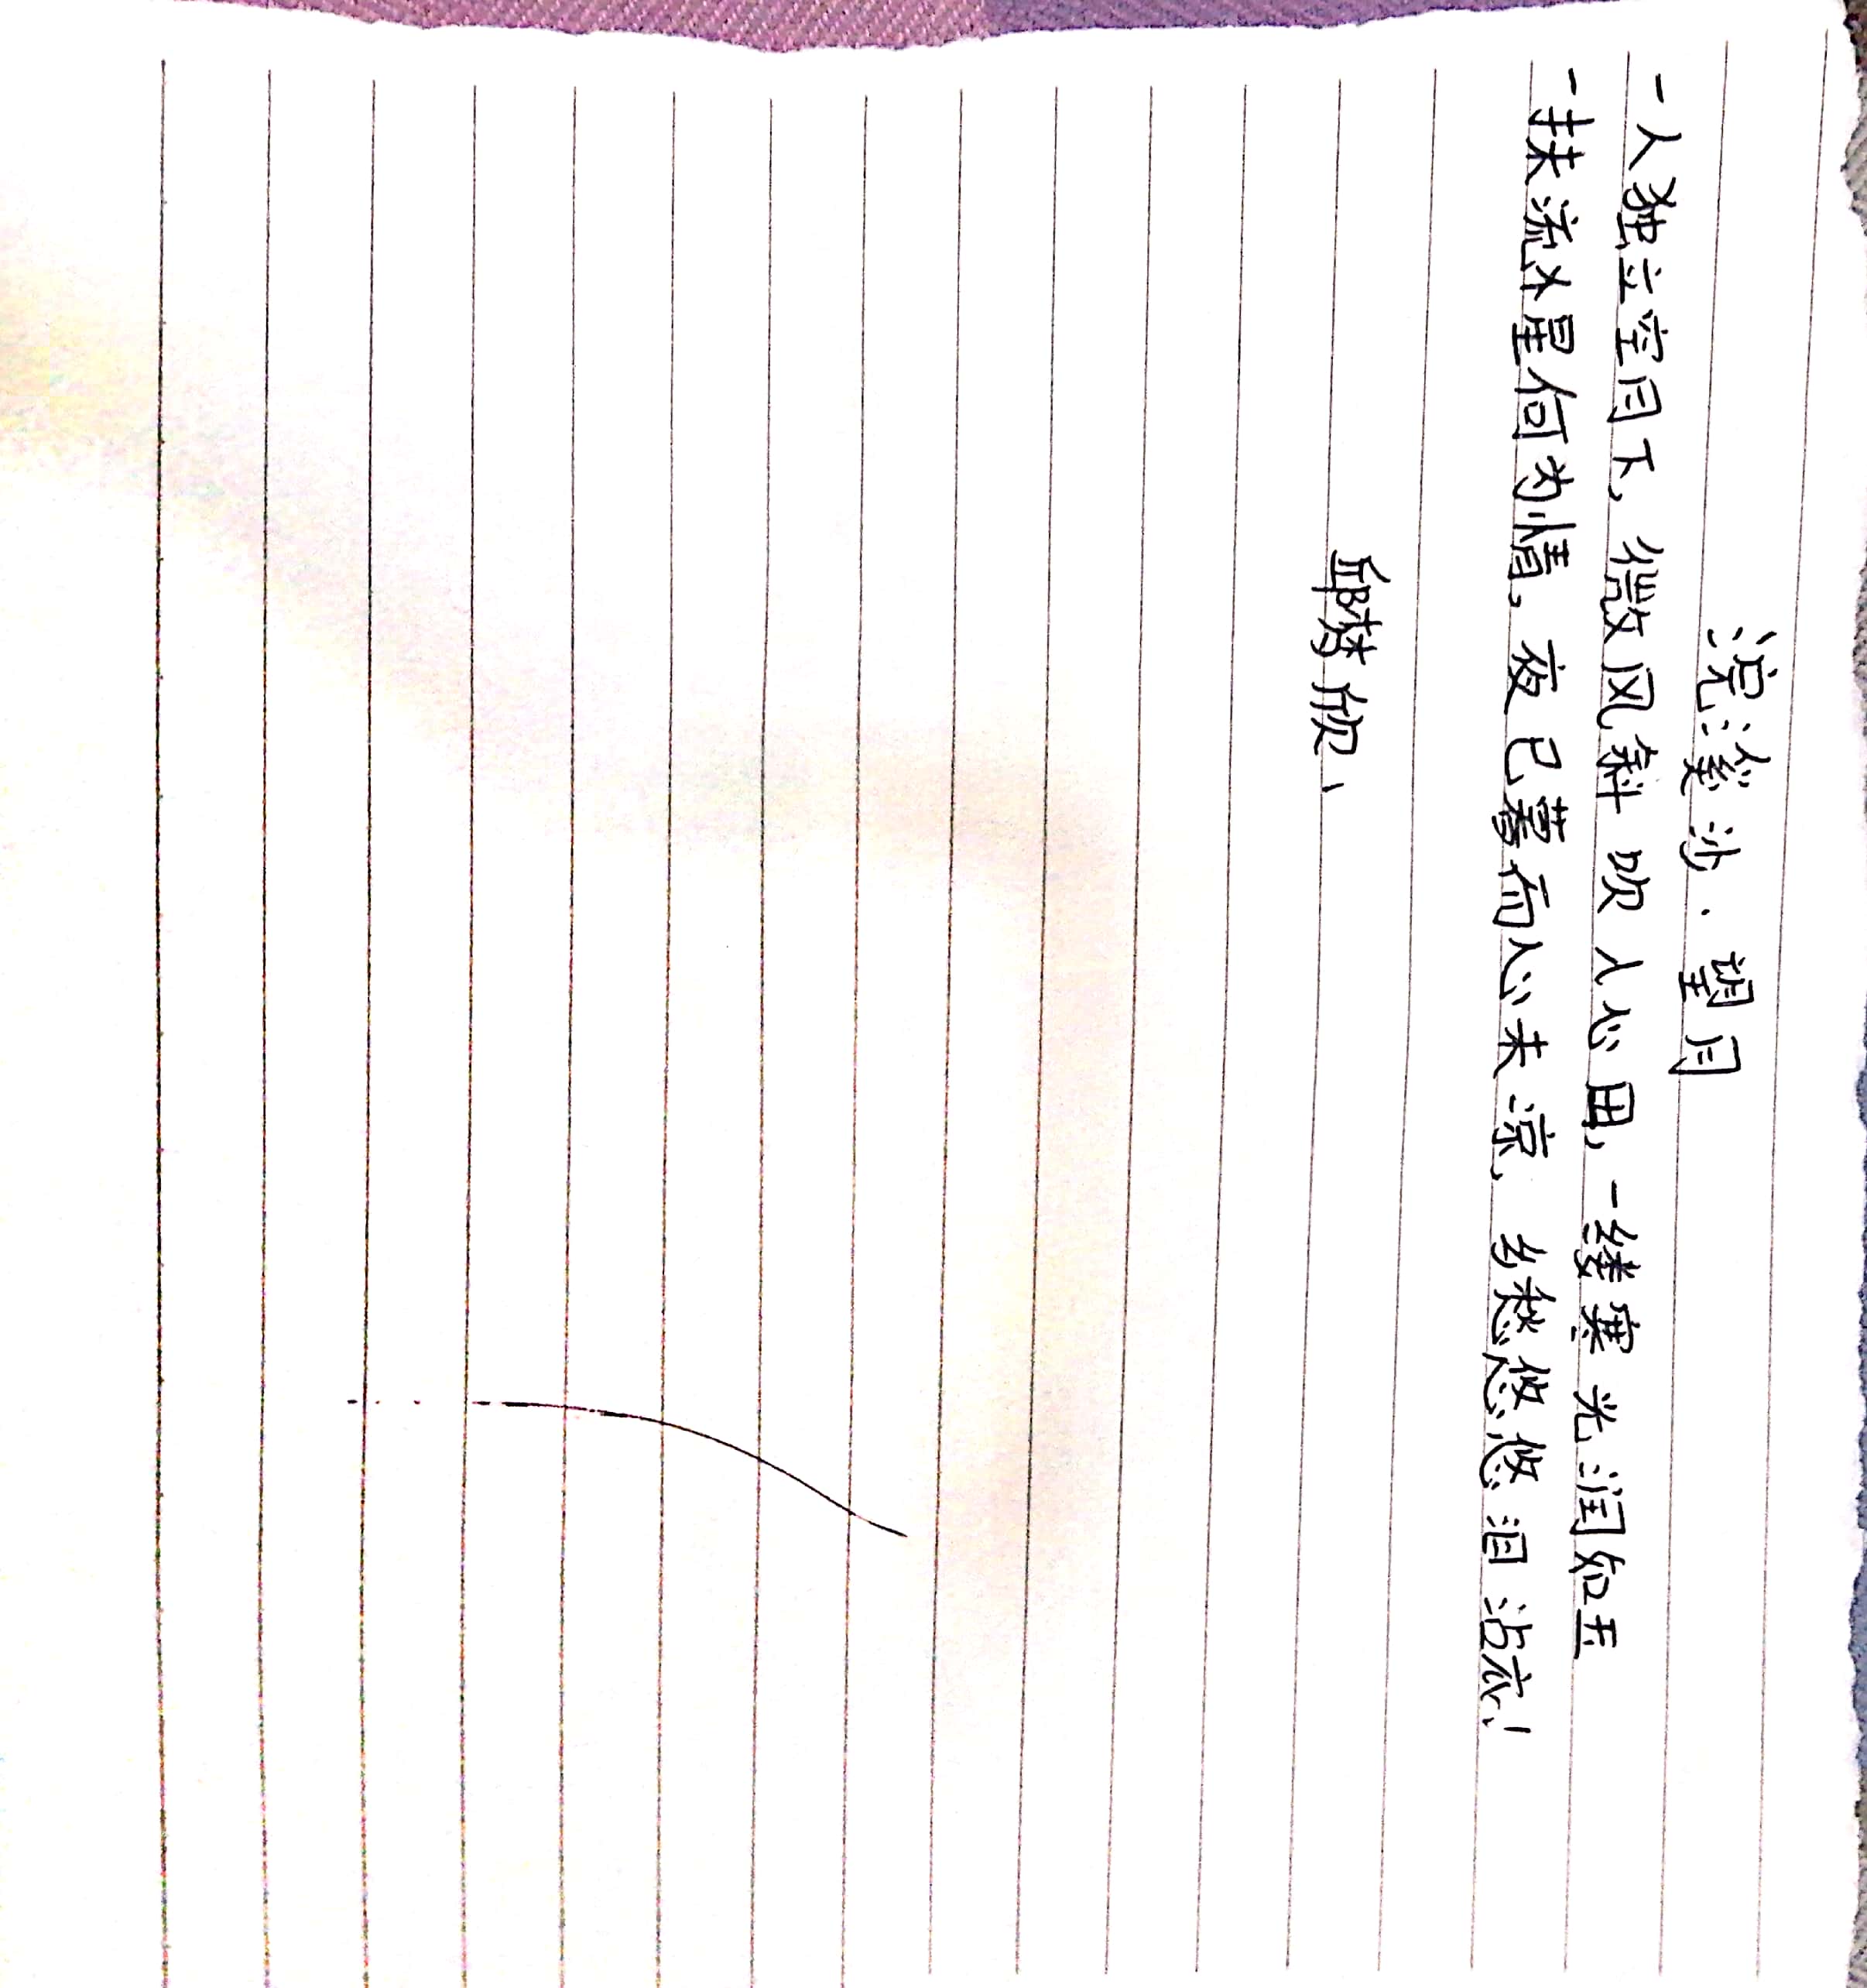 浣溪沙·望月
一人独立空月下,微风斜吹人心田,一缕寒光润如玉
一扶流水星何为情,夜已暮而心未凉,乡愁悠悠泪沾衣!
邱梦欣、